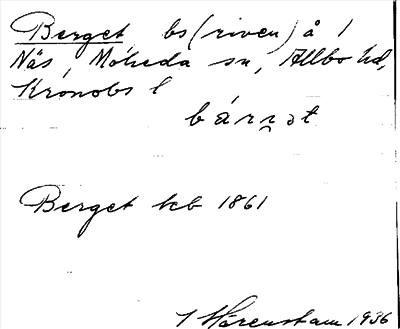 Berget bs (riven) å 1
Näs, Moheda sn, Allbo hd,
Kronobs l
bárꞃət
Berget kb 1861
I Härenstam 1936